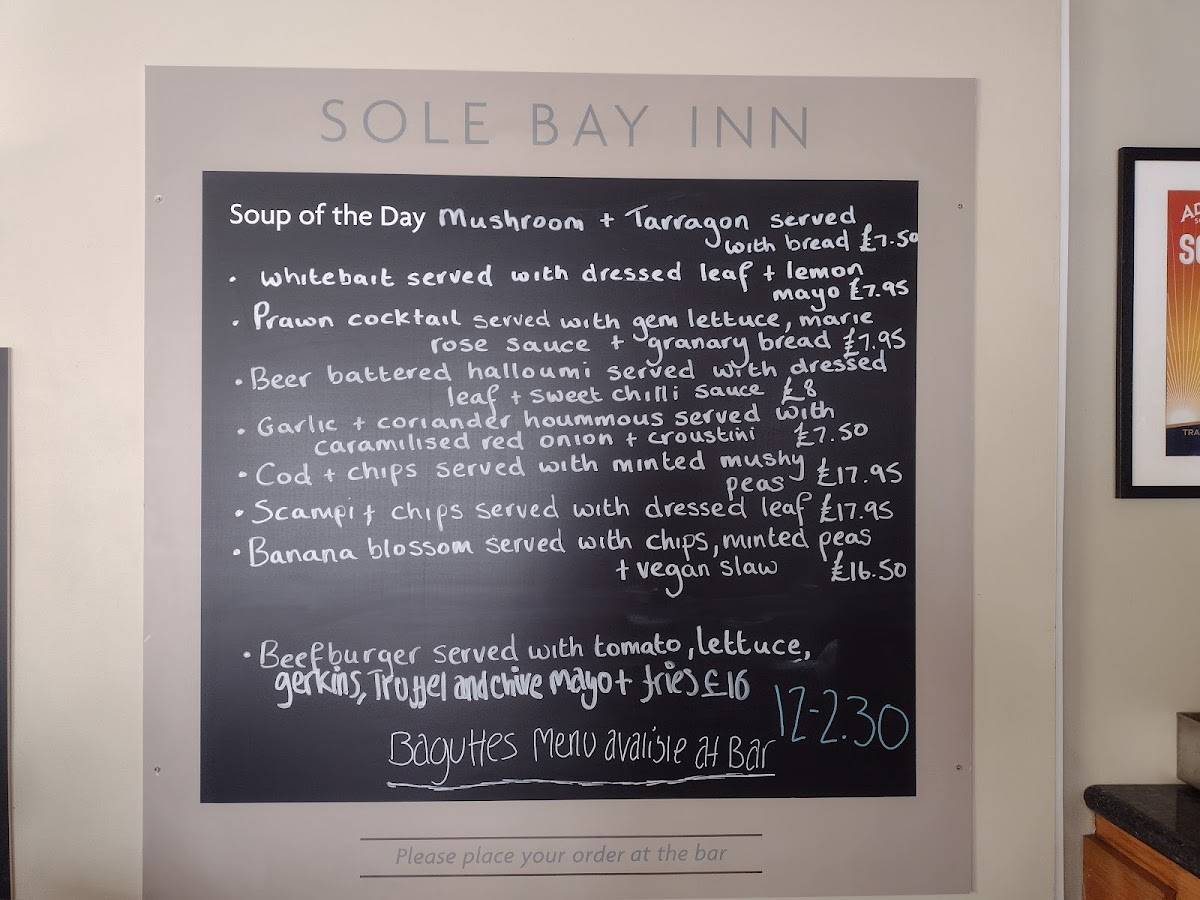 SOLE BAY INN
Soup of the Day Mushroom + Tarragon served
with bread £7.50
• Whitebait served with dressed leaf + lemon
mayo £7.95
• Prawn cocktail served with gem lettuce, marie
rose sauce + granary bread £7.95
• Beer battered halloumi served with dressed
leaf + sweet chilli sauce £8
• Garlic + coriander hoummous served with
caramilised red onion + croustini £7.50
• Cod + chips served with minted mushy
peas £17.95
• Scampi + chips served with dressed leaf £17.95
• Banana blossom served with chips, minted peas
+ vegan slaw £16.50
• Beefburger served with tomato, lettuce,
gerkins, Truffel and chive mayo + fries £16
12-2.30
Baguttes Menu avalible at Bar
Please place your order at the bar
SO
TRA